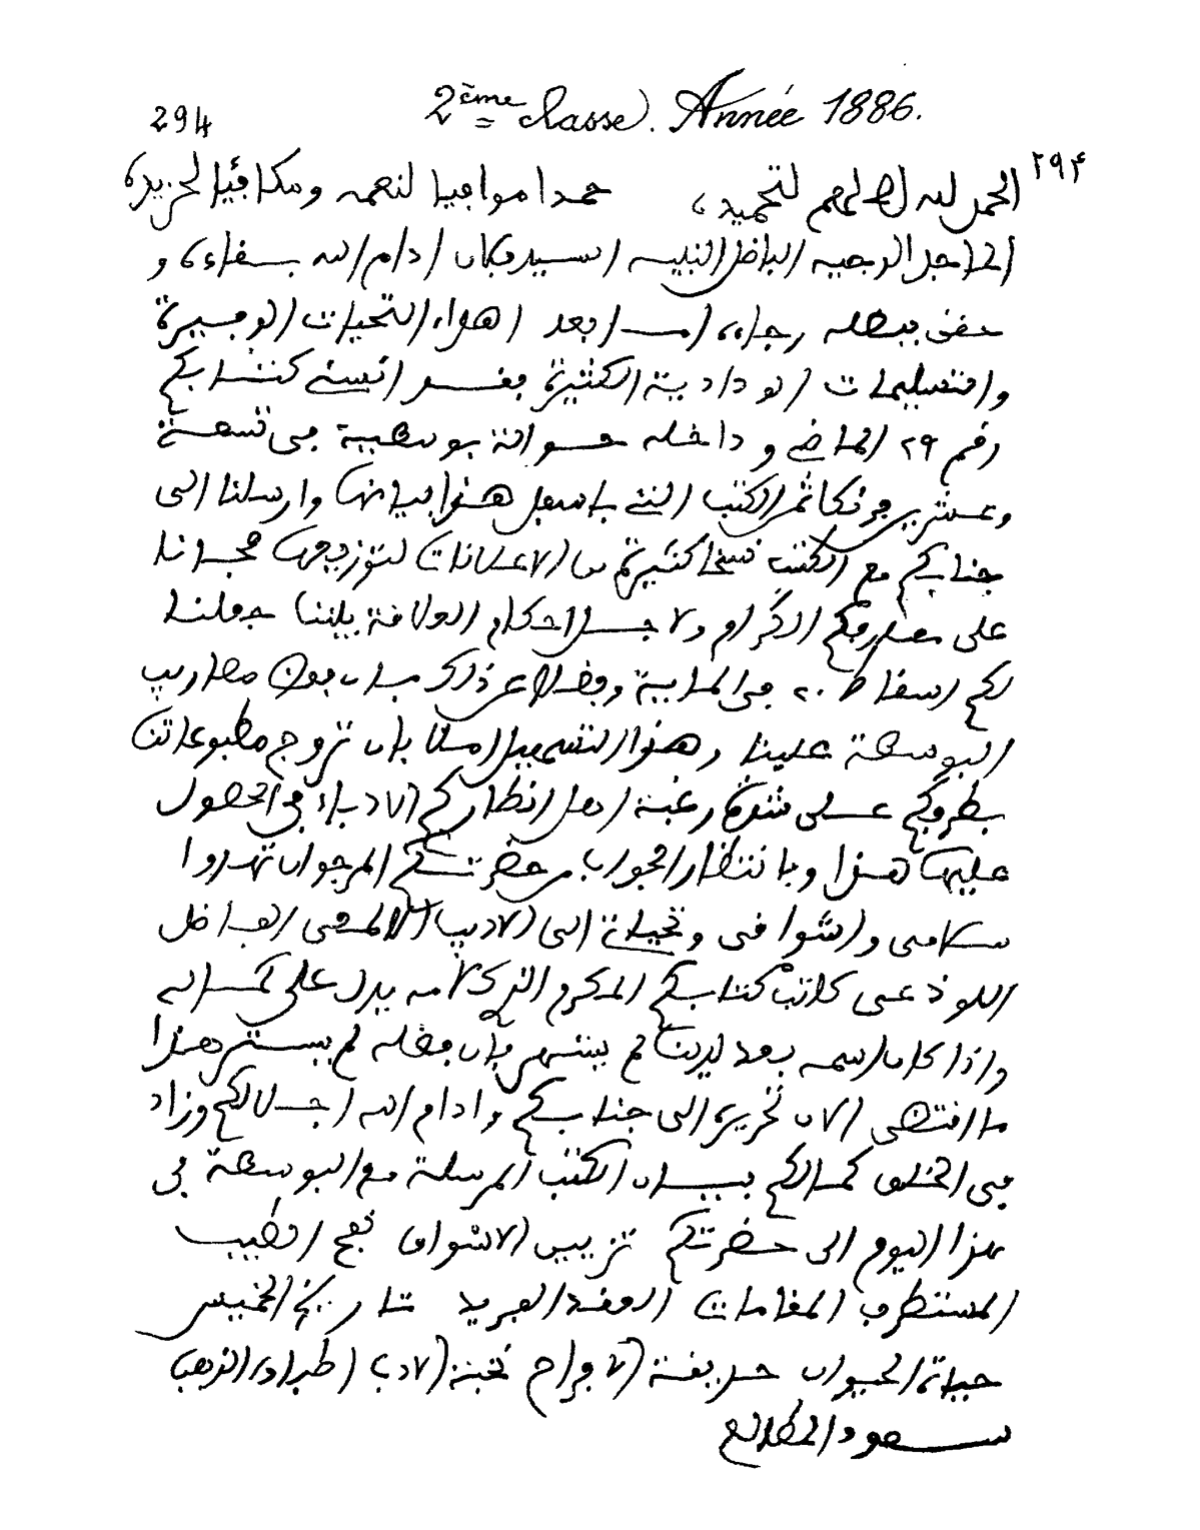 294
2ème classe. Année 1886.
٢٩٤
الحمد لله الملهم لتحميده حمدا موافيا لنعمه ومكافيا لمزيده
الماجد الوجيه الفاضل النبيه السيد فكان ادام الله بقاءه و
حقق بفضله رجاءه امــا بعد اهداء التحيات الوجيزة
والتسليمات الودادية الكثيرة فقد انسنى كتابكم
رقم ٢٩ الماضي و داخله حوالة بوسطية في تسعة
وعشرين فرنكا ثمن الكتب التي باسفل هذا بيانها وارسلنا الى
جنابكم مع الكتب نسخا كثيرة من الاعلانات لتوزيعها مجانا
على معارفكم الكرام ولاجل احكام العلاقة بيننا جعلنا
لكم اسقاط ٢٠ في الماية وفضلا عن ذلك بان تكون مصاريف
البوسطة علينا وهذا التسهيل املا بان تروج مطبوعاتنا
بطرفكم على شدة رغبة اهل انظاركم الادباء في الحصول
عليها هذا وبانتظار الجواب من حضرتكم المرجو ان تهدوا
سلامي واشواقي وتحياتي الى الاديب الالمعي الفاضل
اللوذعي كاتب كتابكم المكرم الذي كلامه يدل على كماله
واذا كان اسمه بعد لدينا لم يشتهر فان فضله لم يستتر هذا
ما اقتضى الان تحريره الى جنابكم وادام الله اجلالكم وزاد
في الخلق كمالكم بيــان الكتب المرسلة مع البوسطة في
هذا اليوم الى حضرتكم تزيين الاشواق نفح الطيب
المستطرف المقامات العقد الفريد تاريخ الخميس
حياة الحيوان حديقة الافراح نخبة الادب اطباق الذهب
سعود المطالع